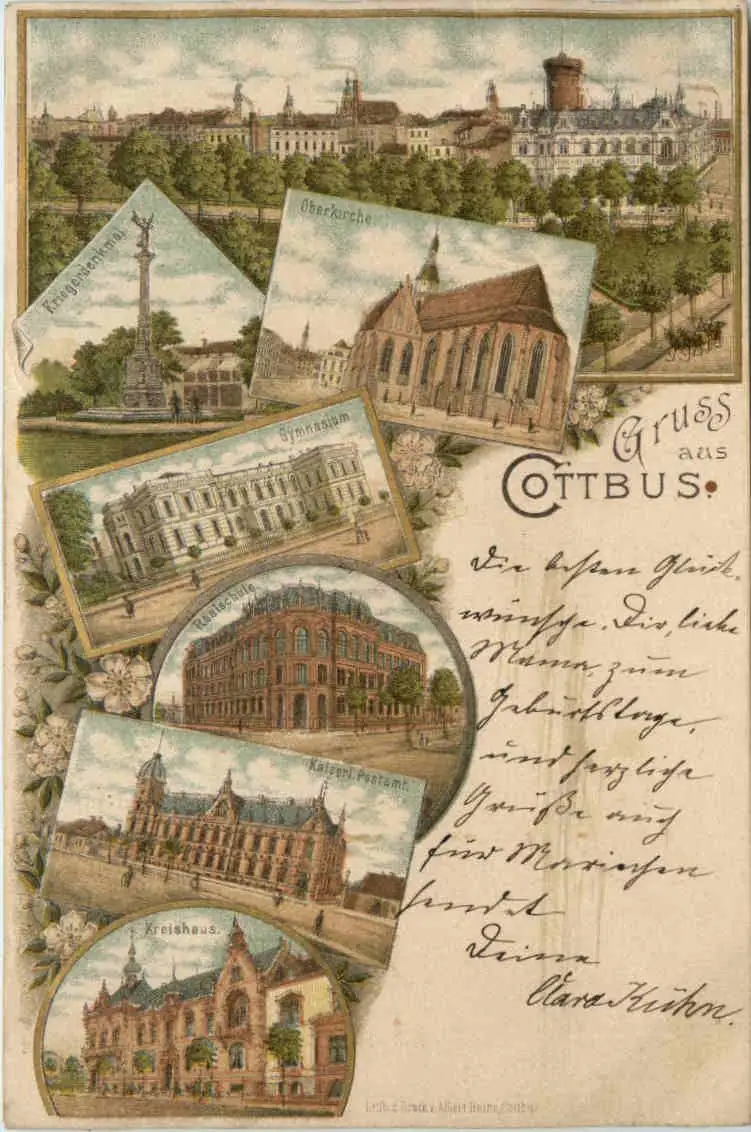 Oberkirche.
Kriegerdenkmal.
Gruss
aus
COTTBUS.
Gymnasium
Realschule
Kaiserl. Postamt.
Kreishaus.
Die besten Glück-
wünsche, Dir, liebe
Mama, zum
Geburtstage,
und herzliche
Grüße auch
für Mariechen
sendet
Deine
Clara Kühn.